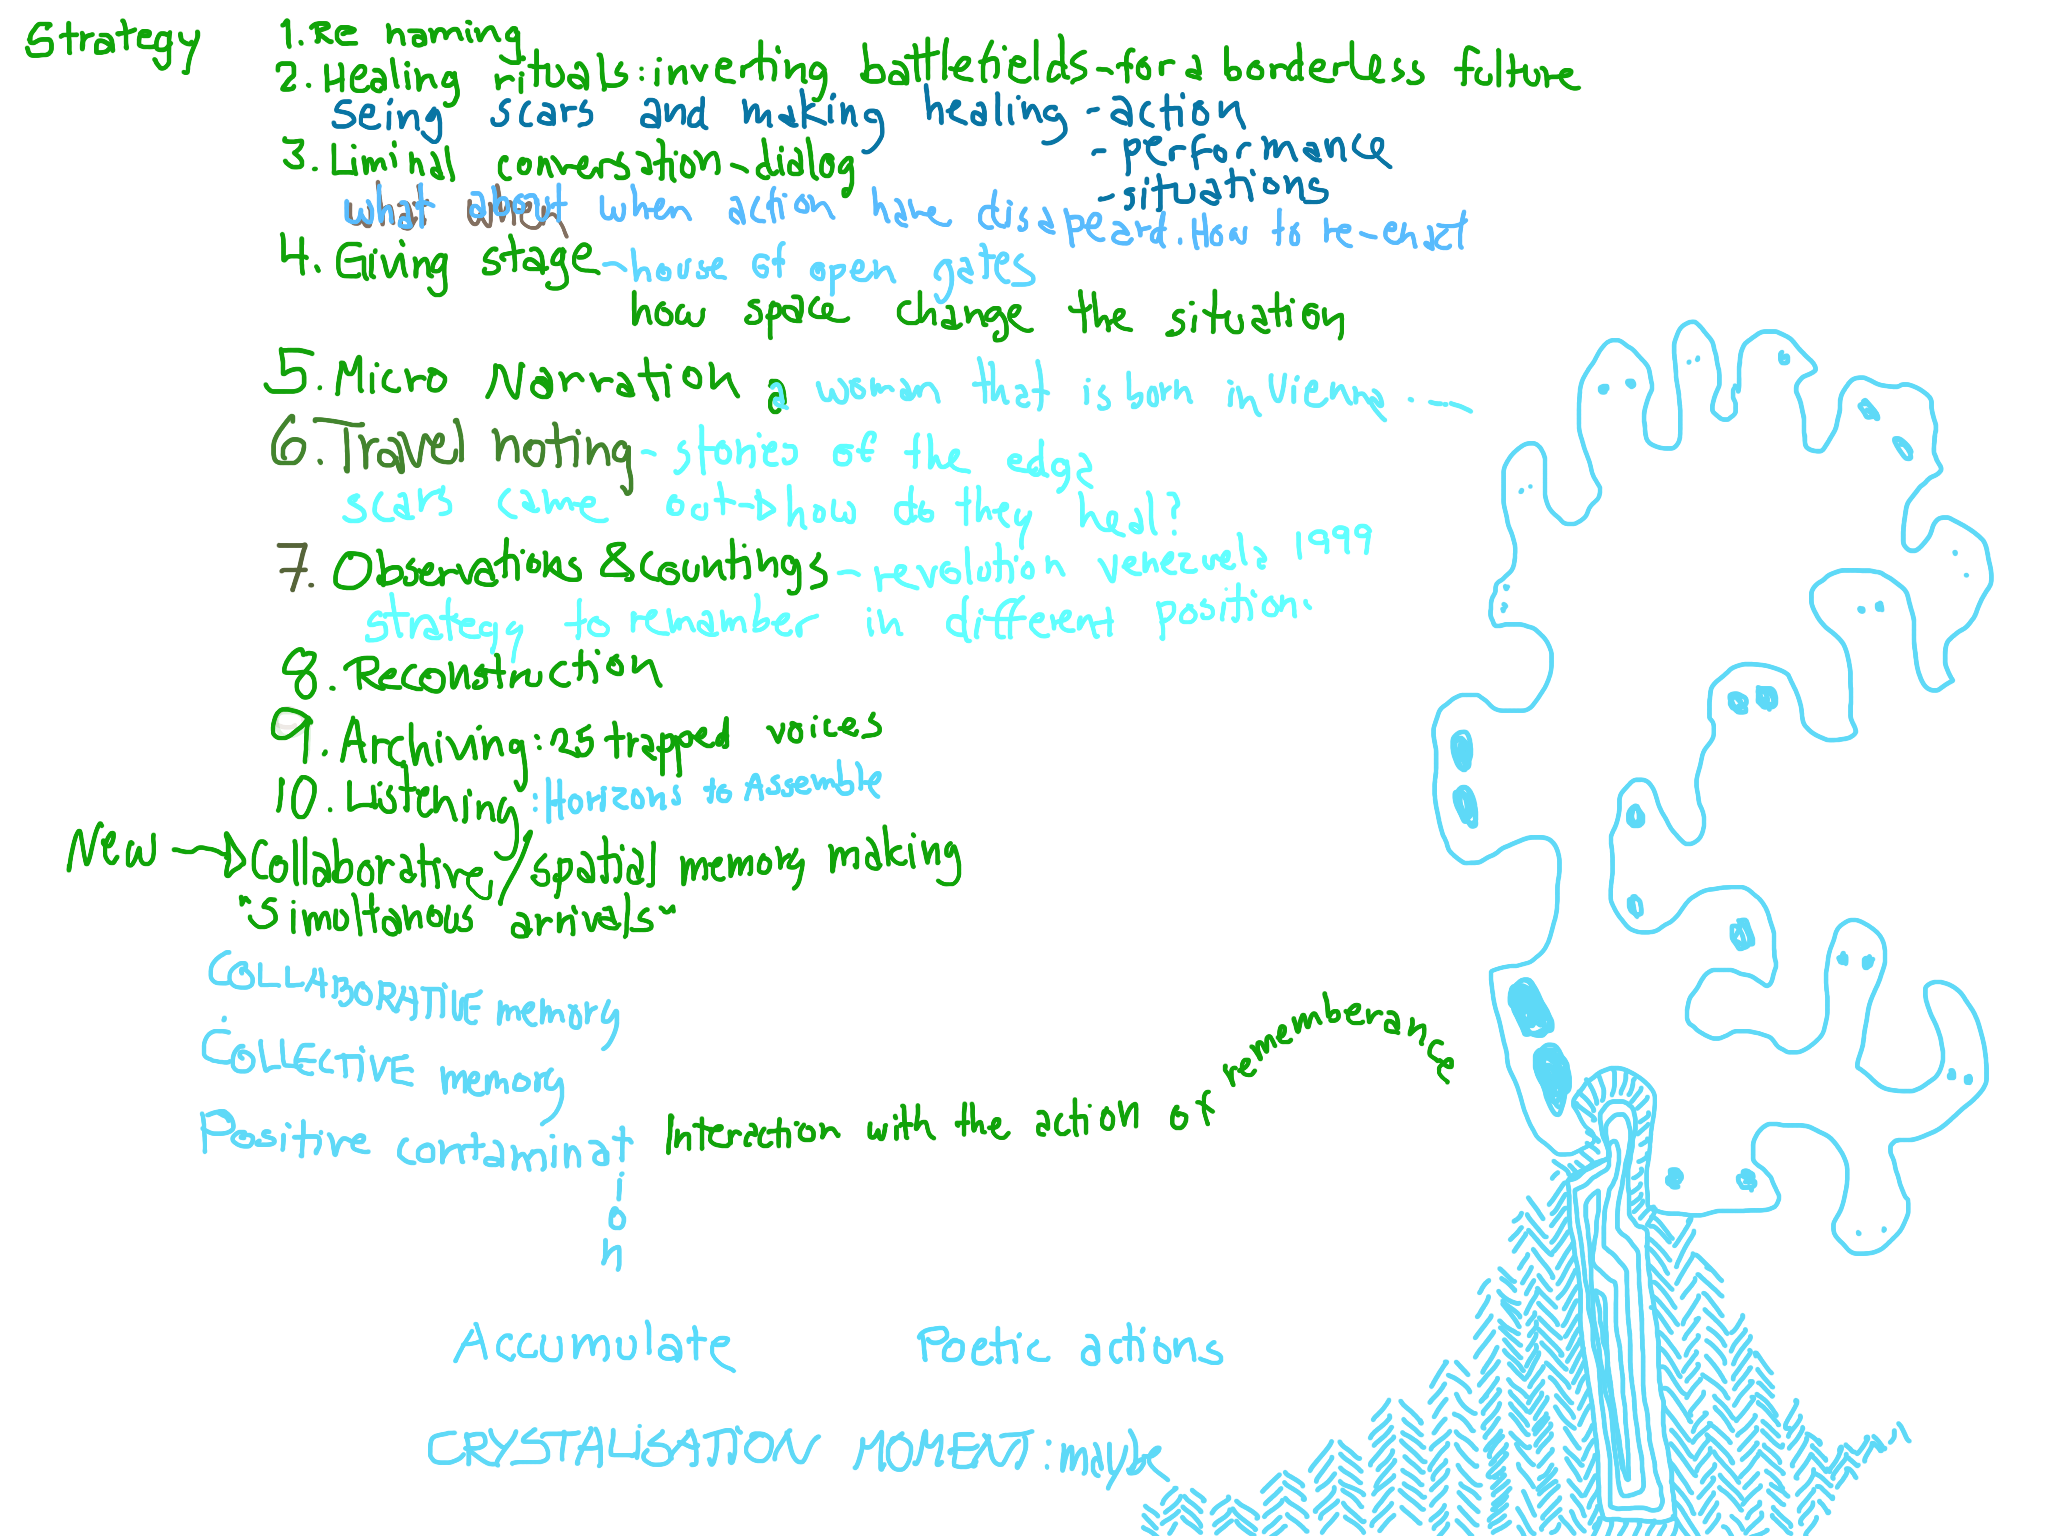 Strategy
1. Re naming
2. Healing rituals: inverting battlefields - for a borderless fulture
seing scars and making healing - action
- performance
- situations
3. Liminal conversation - dialog
what about when action have disapeard. How to re-enact
4. Giving stage - house of open gates
how space change the situation
5. Micro Narration a woman that is born in Vienna . ---
6. Travel noting - stories of the edge
scars came out → how do they heal?
7. Observations & countings - revolution venezuela 1999
strategy to remamber in different position.
8. Reconstruction
9. Archiving: 25 trapped voices
10. Listening: Horizons to Assemble
New → Collaborative / spatial memory making
"Simultanous arrivals"
COLLABORATIVE memory
COLLECTIVE memory
Positive contamination
Interaction with the action of rememberance
Accumulate
Poetic actions
CRYSTALiSATION MOMENT: maybe